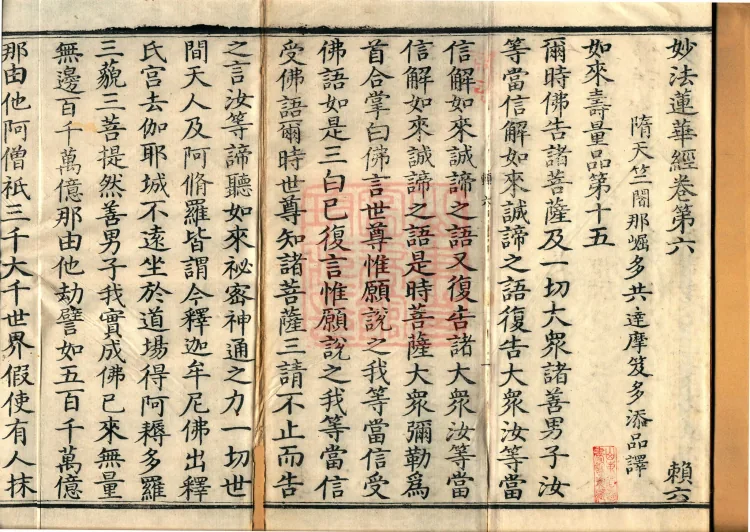 妙法蓮華經卷第六 賴六
隋天竺闍那崛多共達摩笈多添品譯
如來壽量品第十五
爾時佛告諸菩薩及一切大衆諸善男子汝
等當信解如來誠諦之語復告大衆汝等當
信解如來誠諦之語又復告諸大衆汝等當
信解如來誠諦之語是時菩薩大衆彌勒爲
首合掌白佛言世尊惟願說之我等當信受
佛語如是三白已復言惟願說之我等當信
受佛語爾時世尊知諸菩薩三請不止而告
之言汝等諦聽如來祕密神通之力一切世
間天人及阿脩羅皆謂今釋迦牟尼佛出釋
氏宮去伽耶城不遠坐於道場得阿耨多羅
三藐三菩提然善男子我實成佛已來無量
無邊百千萬億那由他劫譬如五百千萬億
那由他阿僧祇三千大千世界假使有人抹